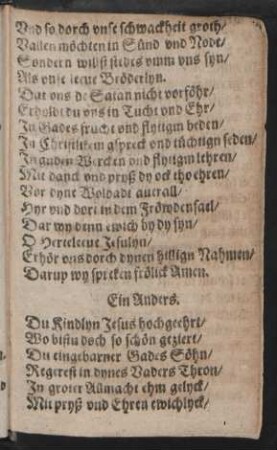 Vnd so dorch vnse schwackheit groth/
Vallen möchten in Sünd vnd Nodt/
Sondern wilst stedes vmm vns syn/
Als vnse leeue Bröderlyn.
Dat ons de Satan nicht vorföhr/
Erholdt du vns in Tucht vnd Ehr/
In Gades frucht vnd flytigm beden/
In Christlikem gspreck vnd tüchtign seden/
In guden Wercken vnd flytigm lehren/
Mit danck vns pryß dy ock tho ehren/
Vor dyne Woldadt auerall/
Hyr vnd dort in dem Fröwdensael/
Dar wy denn ewich by dy syn/
O Herteleeue Jesulyn/
Erhör vns dorch dynen hillign Nahmen/
Darup wy spreken frölick Amen.
Ein Anders.
Du Kindlyn Jesus hochgeehrt/
Wo bistu doch so schön geziert/
Du eingebarner Gades Söhn/
Regerest in dynes Vaders Thron/
In groter Allmacht ehm gelyck/
Mit pryß vnd Ehren ewichlyck/